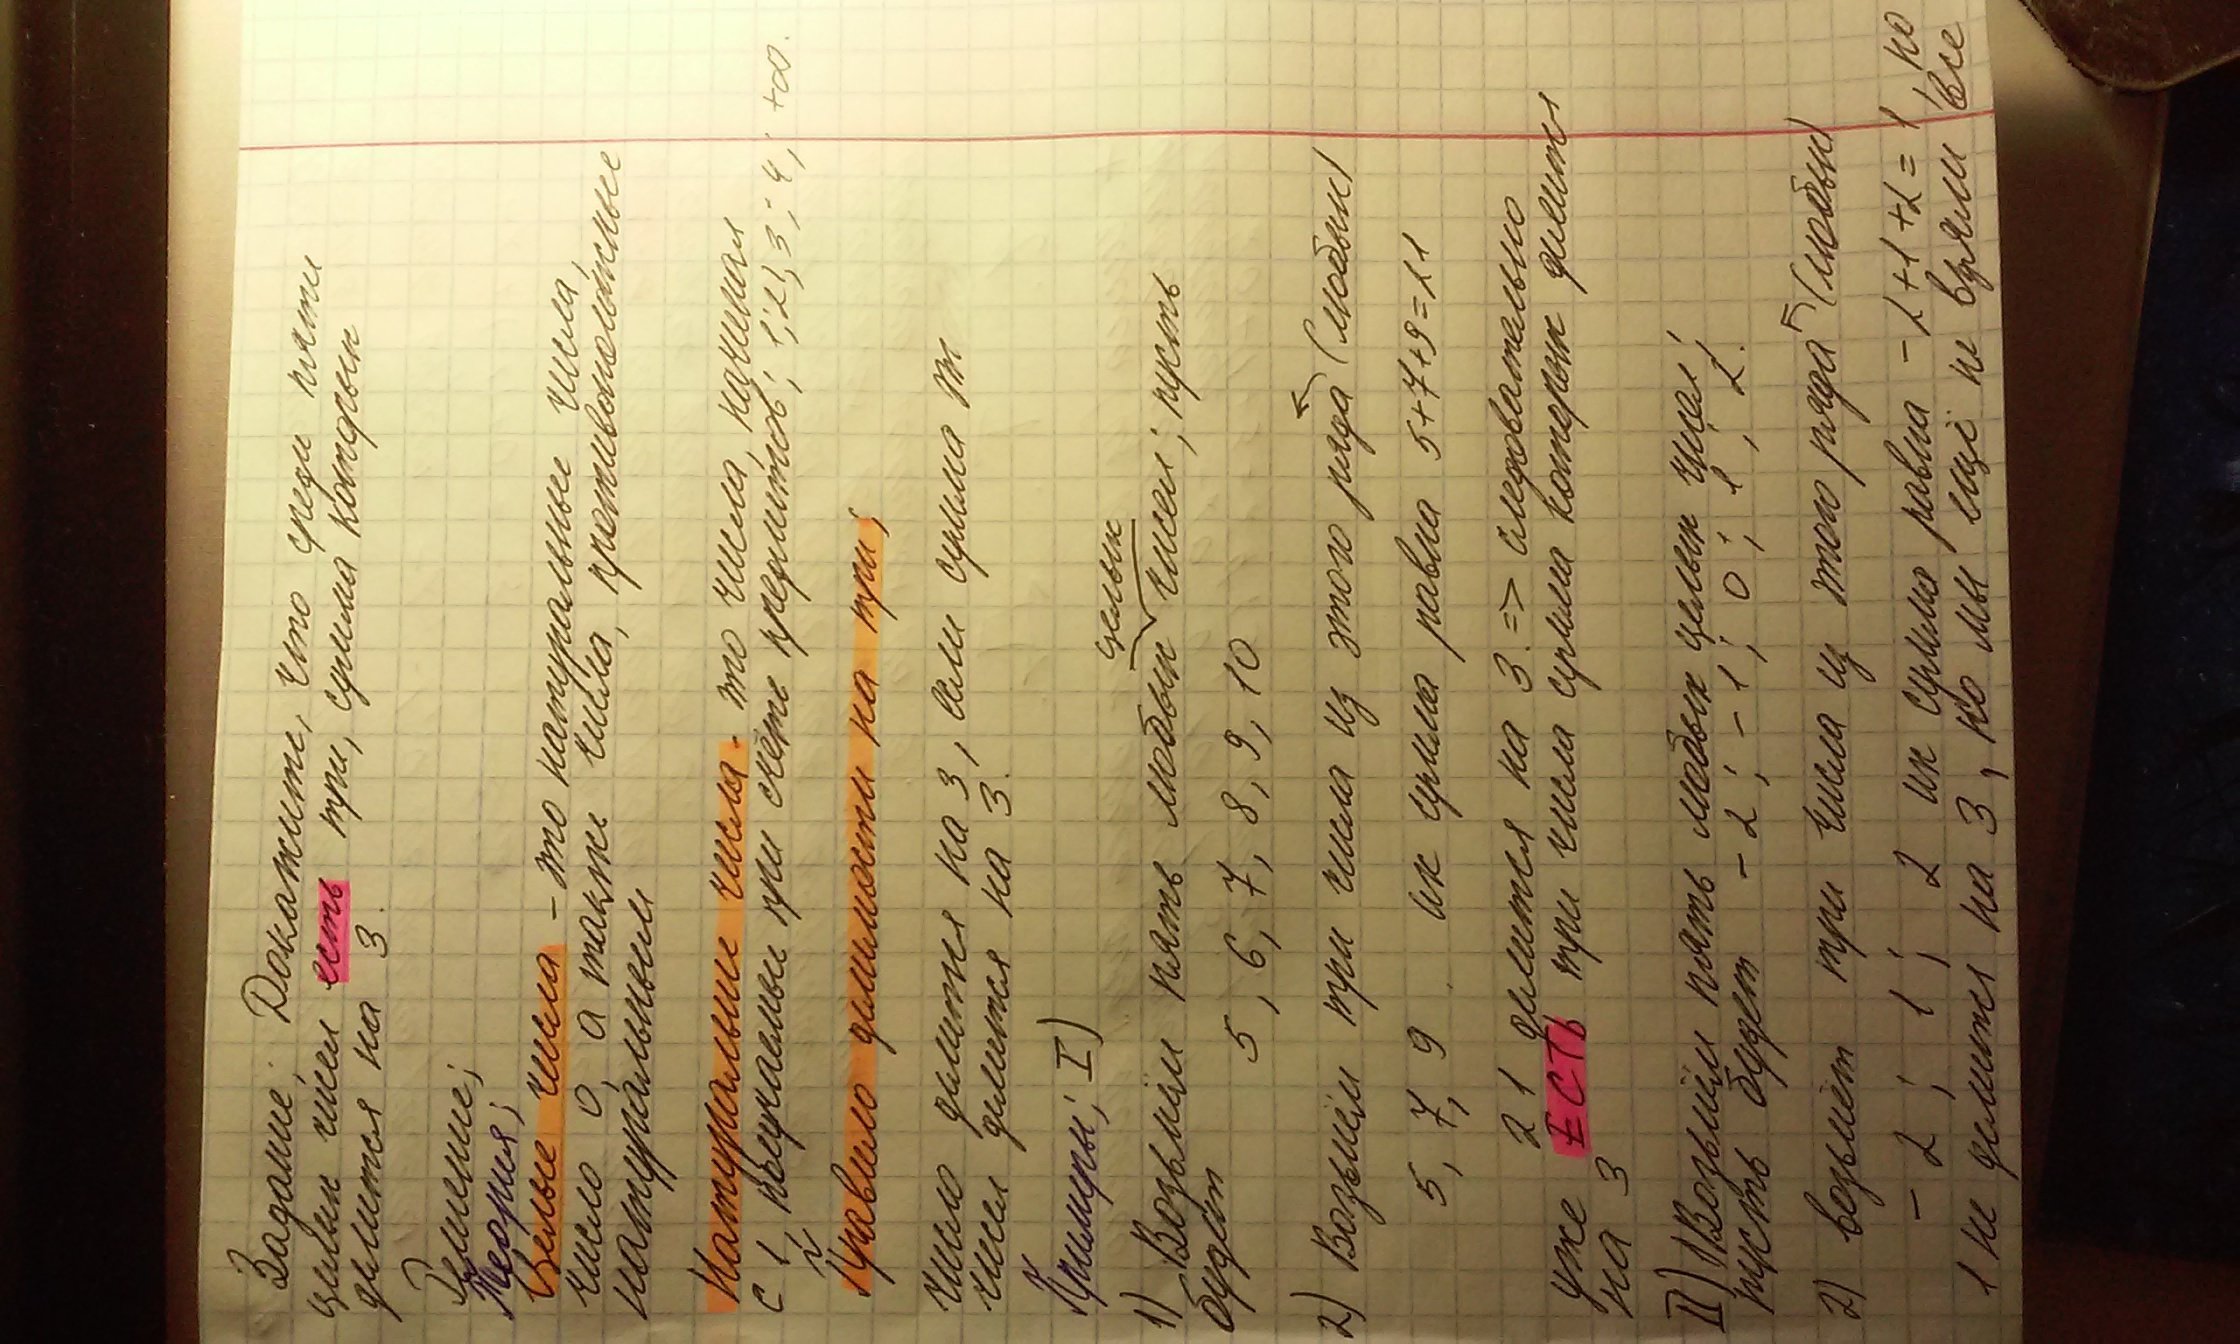 Задание: Докажите, что среди пяти
целых чисел есть три, сумма которых
делится на 3.
Решение;
Теория;
Целые числа - это натуральные числа,
число 0, а также числа, противоположные
натуральным
Натуральные числа - это числа, начиная
с 1, получаемые при счёте предметов; 1; 2; 3; 4; +∞.
Правило делимости на три;
Число делится на 3, если сумма
чисел делится на 3.
Примеры; I)
целых
1) Возьмём пять любых чисел; пусть
будет 5, 6, 7, 8, 9, 10
2) Возьмём три числа из этого ряда (любых)
5, 7, 9 их сумма равна 5+7+9=21
21 делится на 3. => следовательно
уже ЕСТЬ три числа сумма которых делится
на 3
II) 1) Возьмём пять любых целых чисел;
пусть будет -2; -1; 0; 1; 2.
2) возьмём три числа из того ряда (любых)
-2; 1; 2 их сумма равна -2+1+2=1
1 не делится на 3, но мы ещё не взяли все